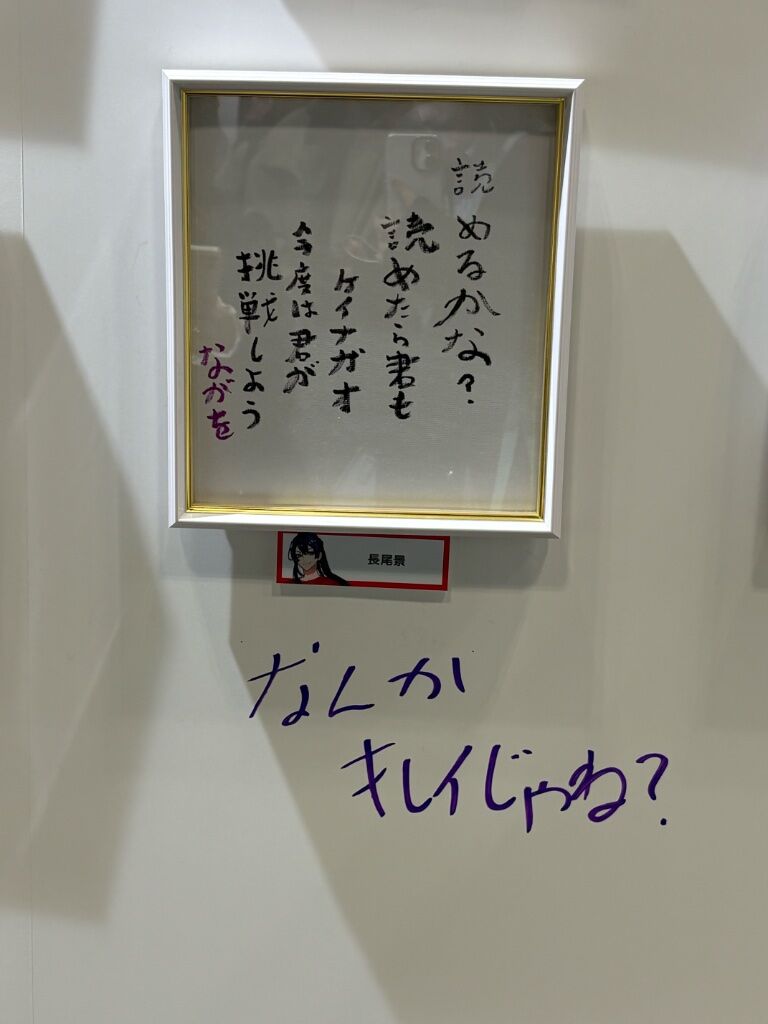 読めるかな？
読めたら君も
ケイナガオ
今度は君が
挑戦しよう
ながを
長尾景
なんか
キレイじゃね？